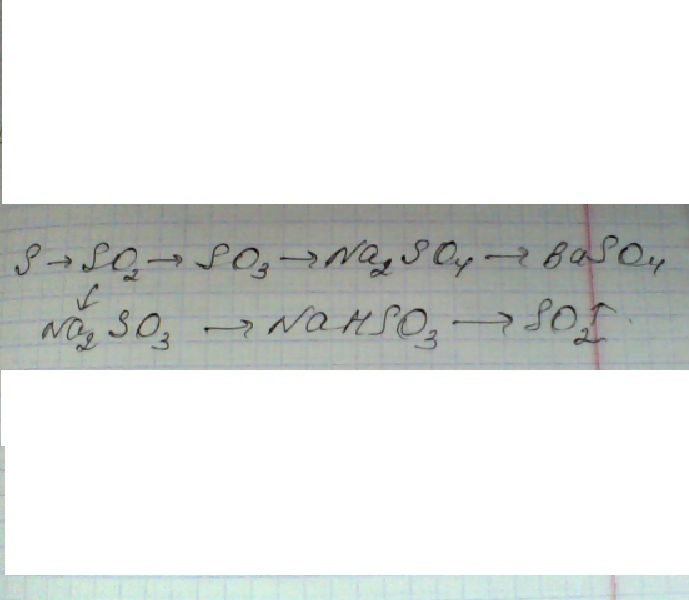 S → SO₂ → SO₃ → Na₂SO₄ → BaSO₄
↓
Na₂SO₃ → NaHSO₃ → SO₂↑